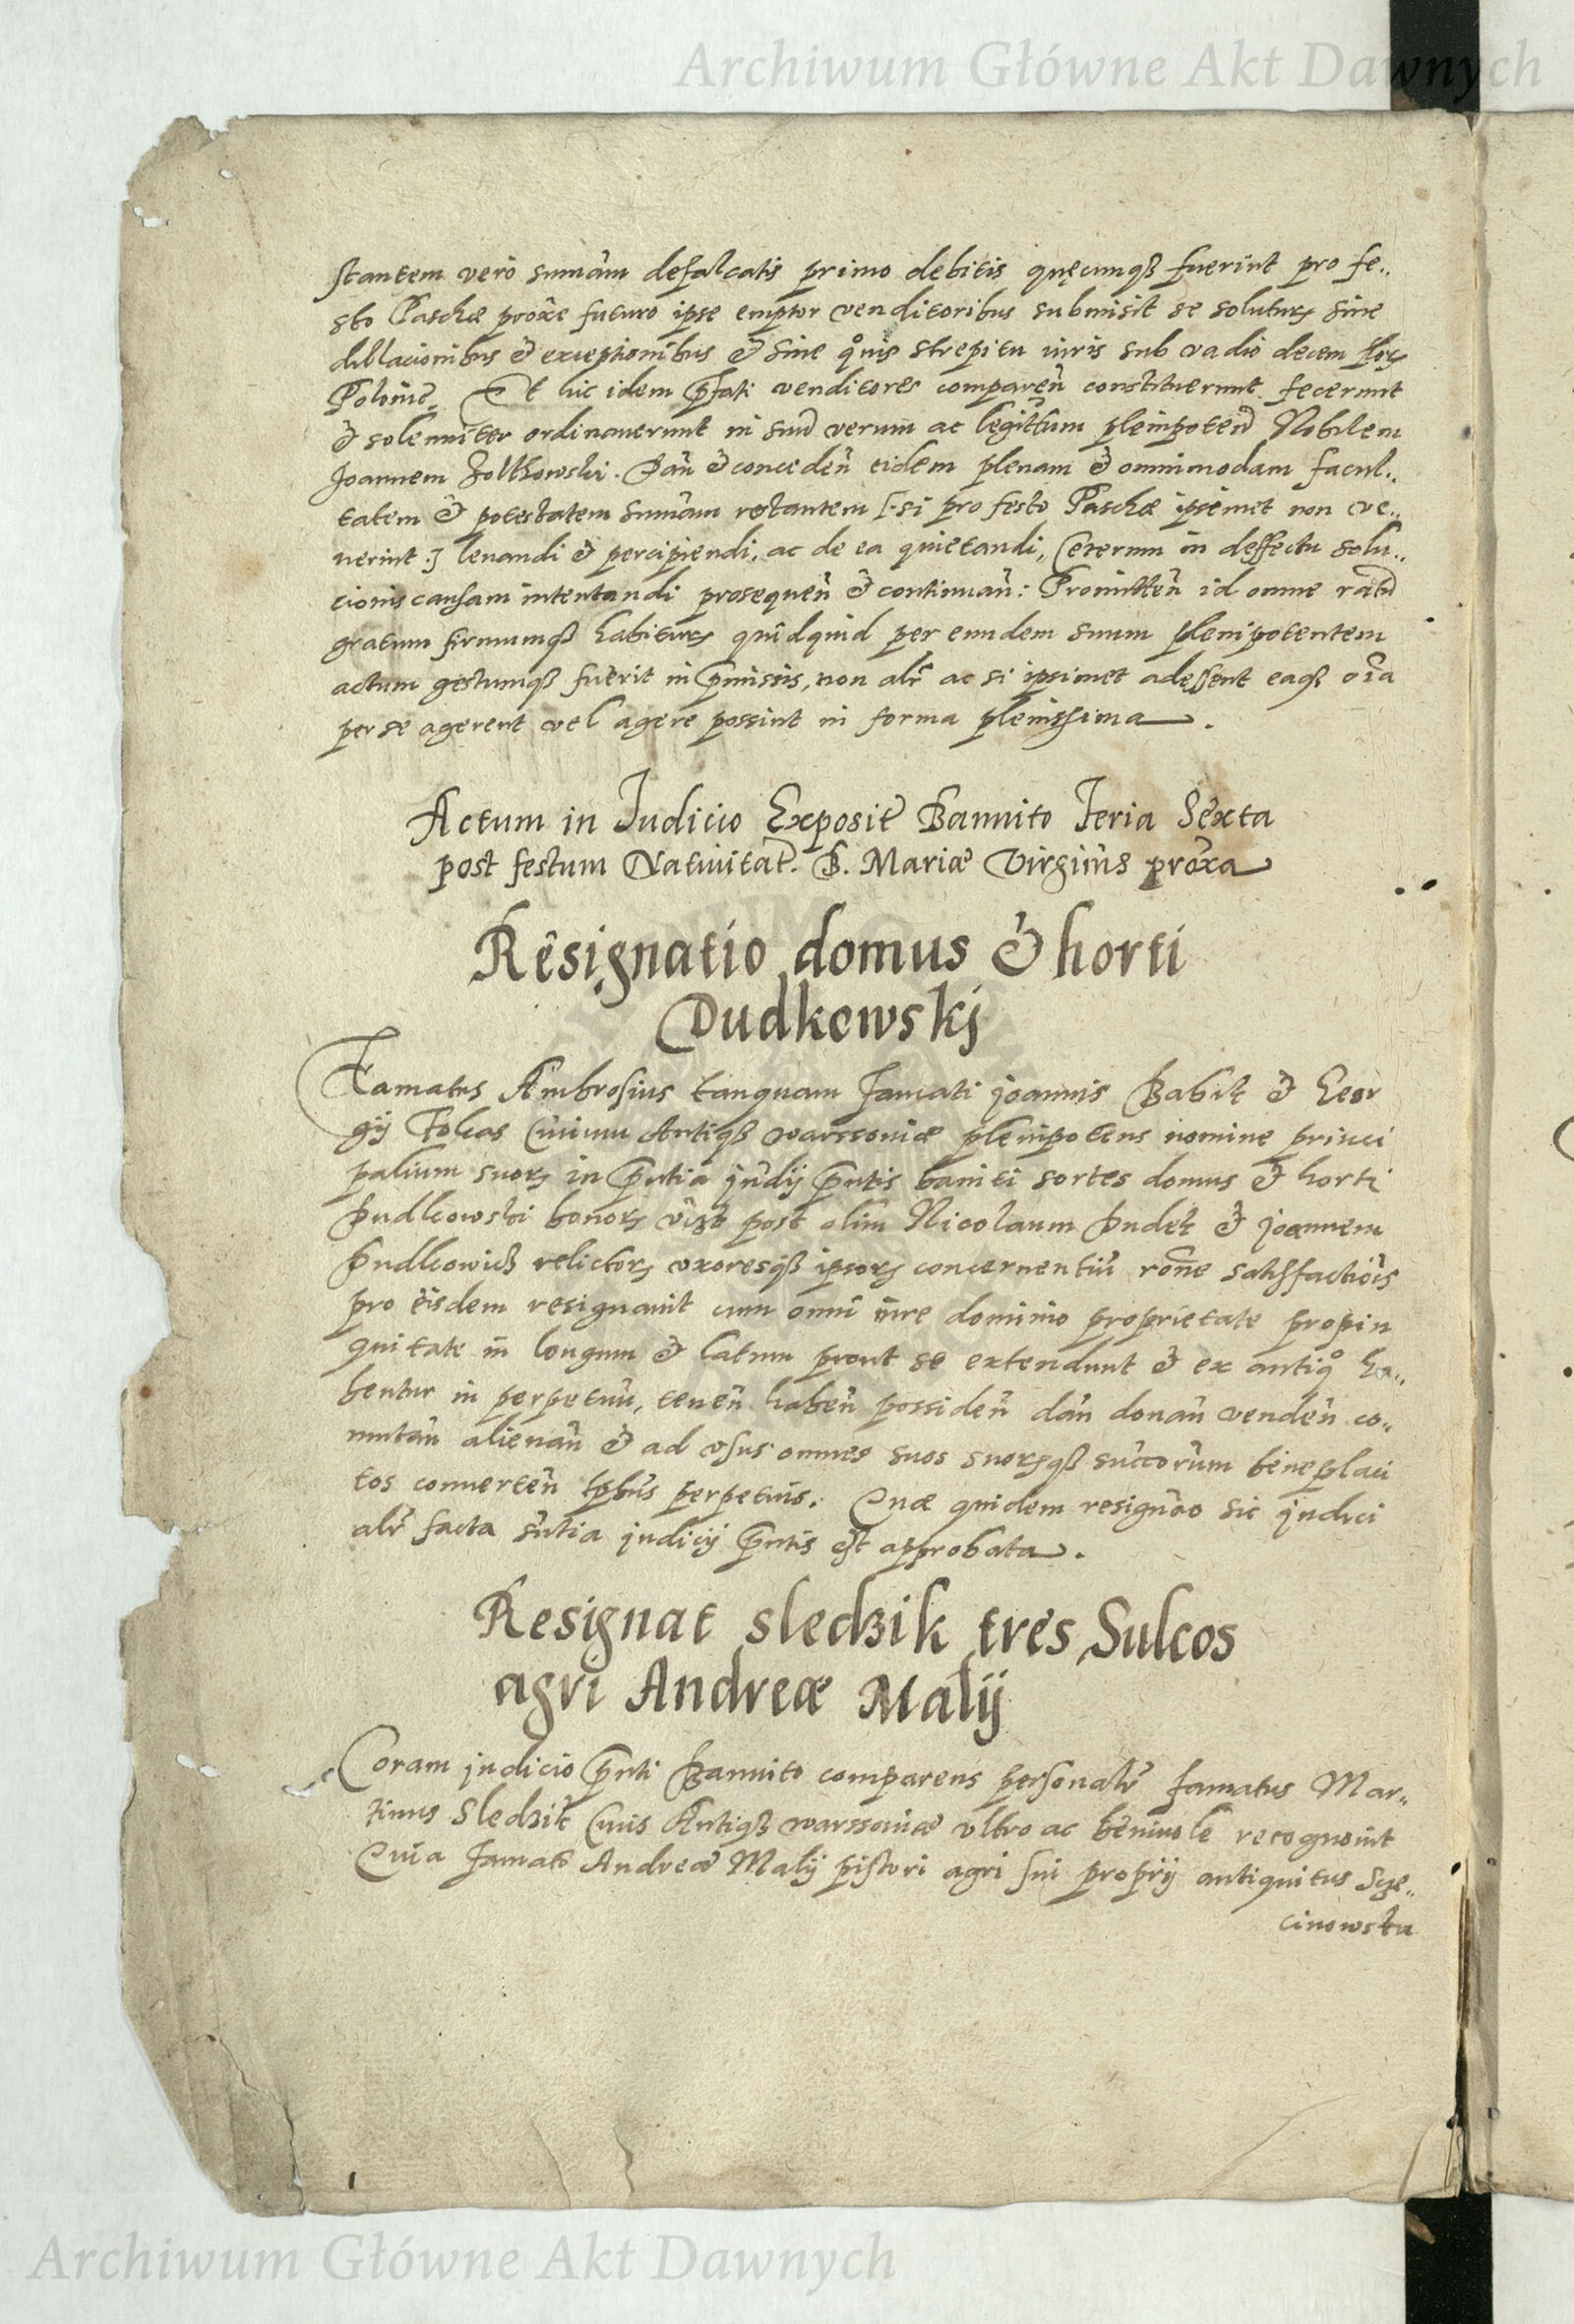 Archiwum Główne Akt Dawnych
stantem vero sum̃am defalcatis primo debitis quęcumqꝫ fuerint pro fe..
sto Paschæ prox̃e futuro ipse emptor venditoribus submisit se soluturꝝ sine
dillacionibus & exceptionibus & sine quis strepitu iuris sub vadio decem flor̃
Poloniē. Et hic idem p̃fati venditores comparen̄ constituerunt fecerunt
& solenniter ordinaverunt in suū verum ac legittum plenipotenē Nobilem
Joannem Zolkowski. Dan̄ & conceden̄ eidem plenam & omnimodam facul..
tatem & potestatem sum̃am restantem [: si pro festo Paschæ ipsimet non ve..
nerint :] levandi & percipiendi, ac de ea quietandi, Ceterum in deffectu solu..
cionis causam intentandi prosequen̄ & continuan̄: Promitten̄ id omne ratū
gratum firmumqꝫ habiturꝝ quidquid per eundem suum plenipotentem
actum gestumqꝫ fuerit in p̃missis, non alr̃ ac si ipsimet adessent eaqꝫ oĩa
per se agerent vel agere possint in forma plenissima.
Actum in Judicio Exposit̃ Bannito Feria Sexta
post festum Nativitat̃. B. Mariæ Virginis prox̃a
Resignatio domus & horti
Dudkowskj
Famatus Ambrosius tanquam famati Joannis Babik & Geor
gij Folcas Civium Antiqꝫ Warssoviæ plenipotens nomine princi
palium suorꝝ in p̃ntia judij p̃ntis baniti sortes domus & horti
Dudkowski bonorꝝ vizt post olim Nicolaum Dudek & Joannem
Dudkowicz relictorꝝ uxoresqꝫ ipsorꝝ concernentiū rõne satisfactiõis
pro eisdem resignavit cum omni iure dominio proprietate propin
quitate in longum & latum prout se extendunt & ex antiqͦ ha..
bentur in perpetuū, tenen̄ haben̄ possiden̄ dan̄ donan̄ venden̄ co..
mutan̄ alienan̄ & ad usus omnes suos suorꝝqꝫ succorum beneplaci
tos converten̄ tpbus perpetuis. Quæ quidem resignão sic judici
alr̃ facta sñtia judicij p̃ntis est approbata.
Resignat sledzik tres Sulcos
agri Andreæ Malij
Coram judicio p̃nti Bannito comparens personalr̃ famatus Mar..
tinus Sledzik Civis Antiqꝫ Warssoviæ ultro ac benivole recognovit
Quia famato Andreæ Malij pistori agri sui proprij antiquitus Sze..
cinowska
Archiwum Główne Akt Dawnych